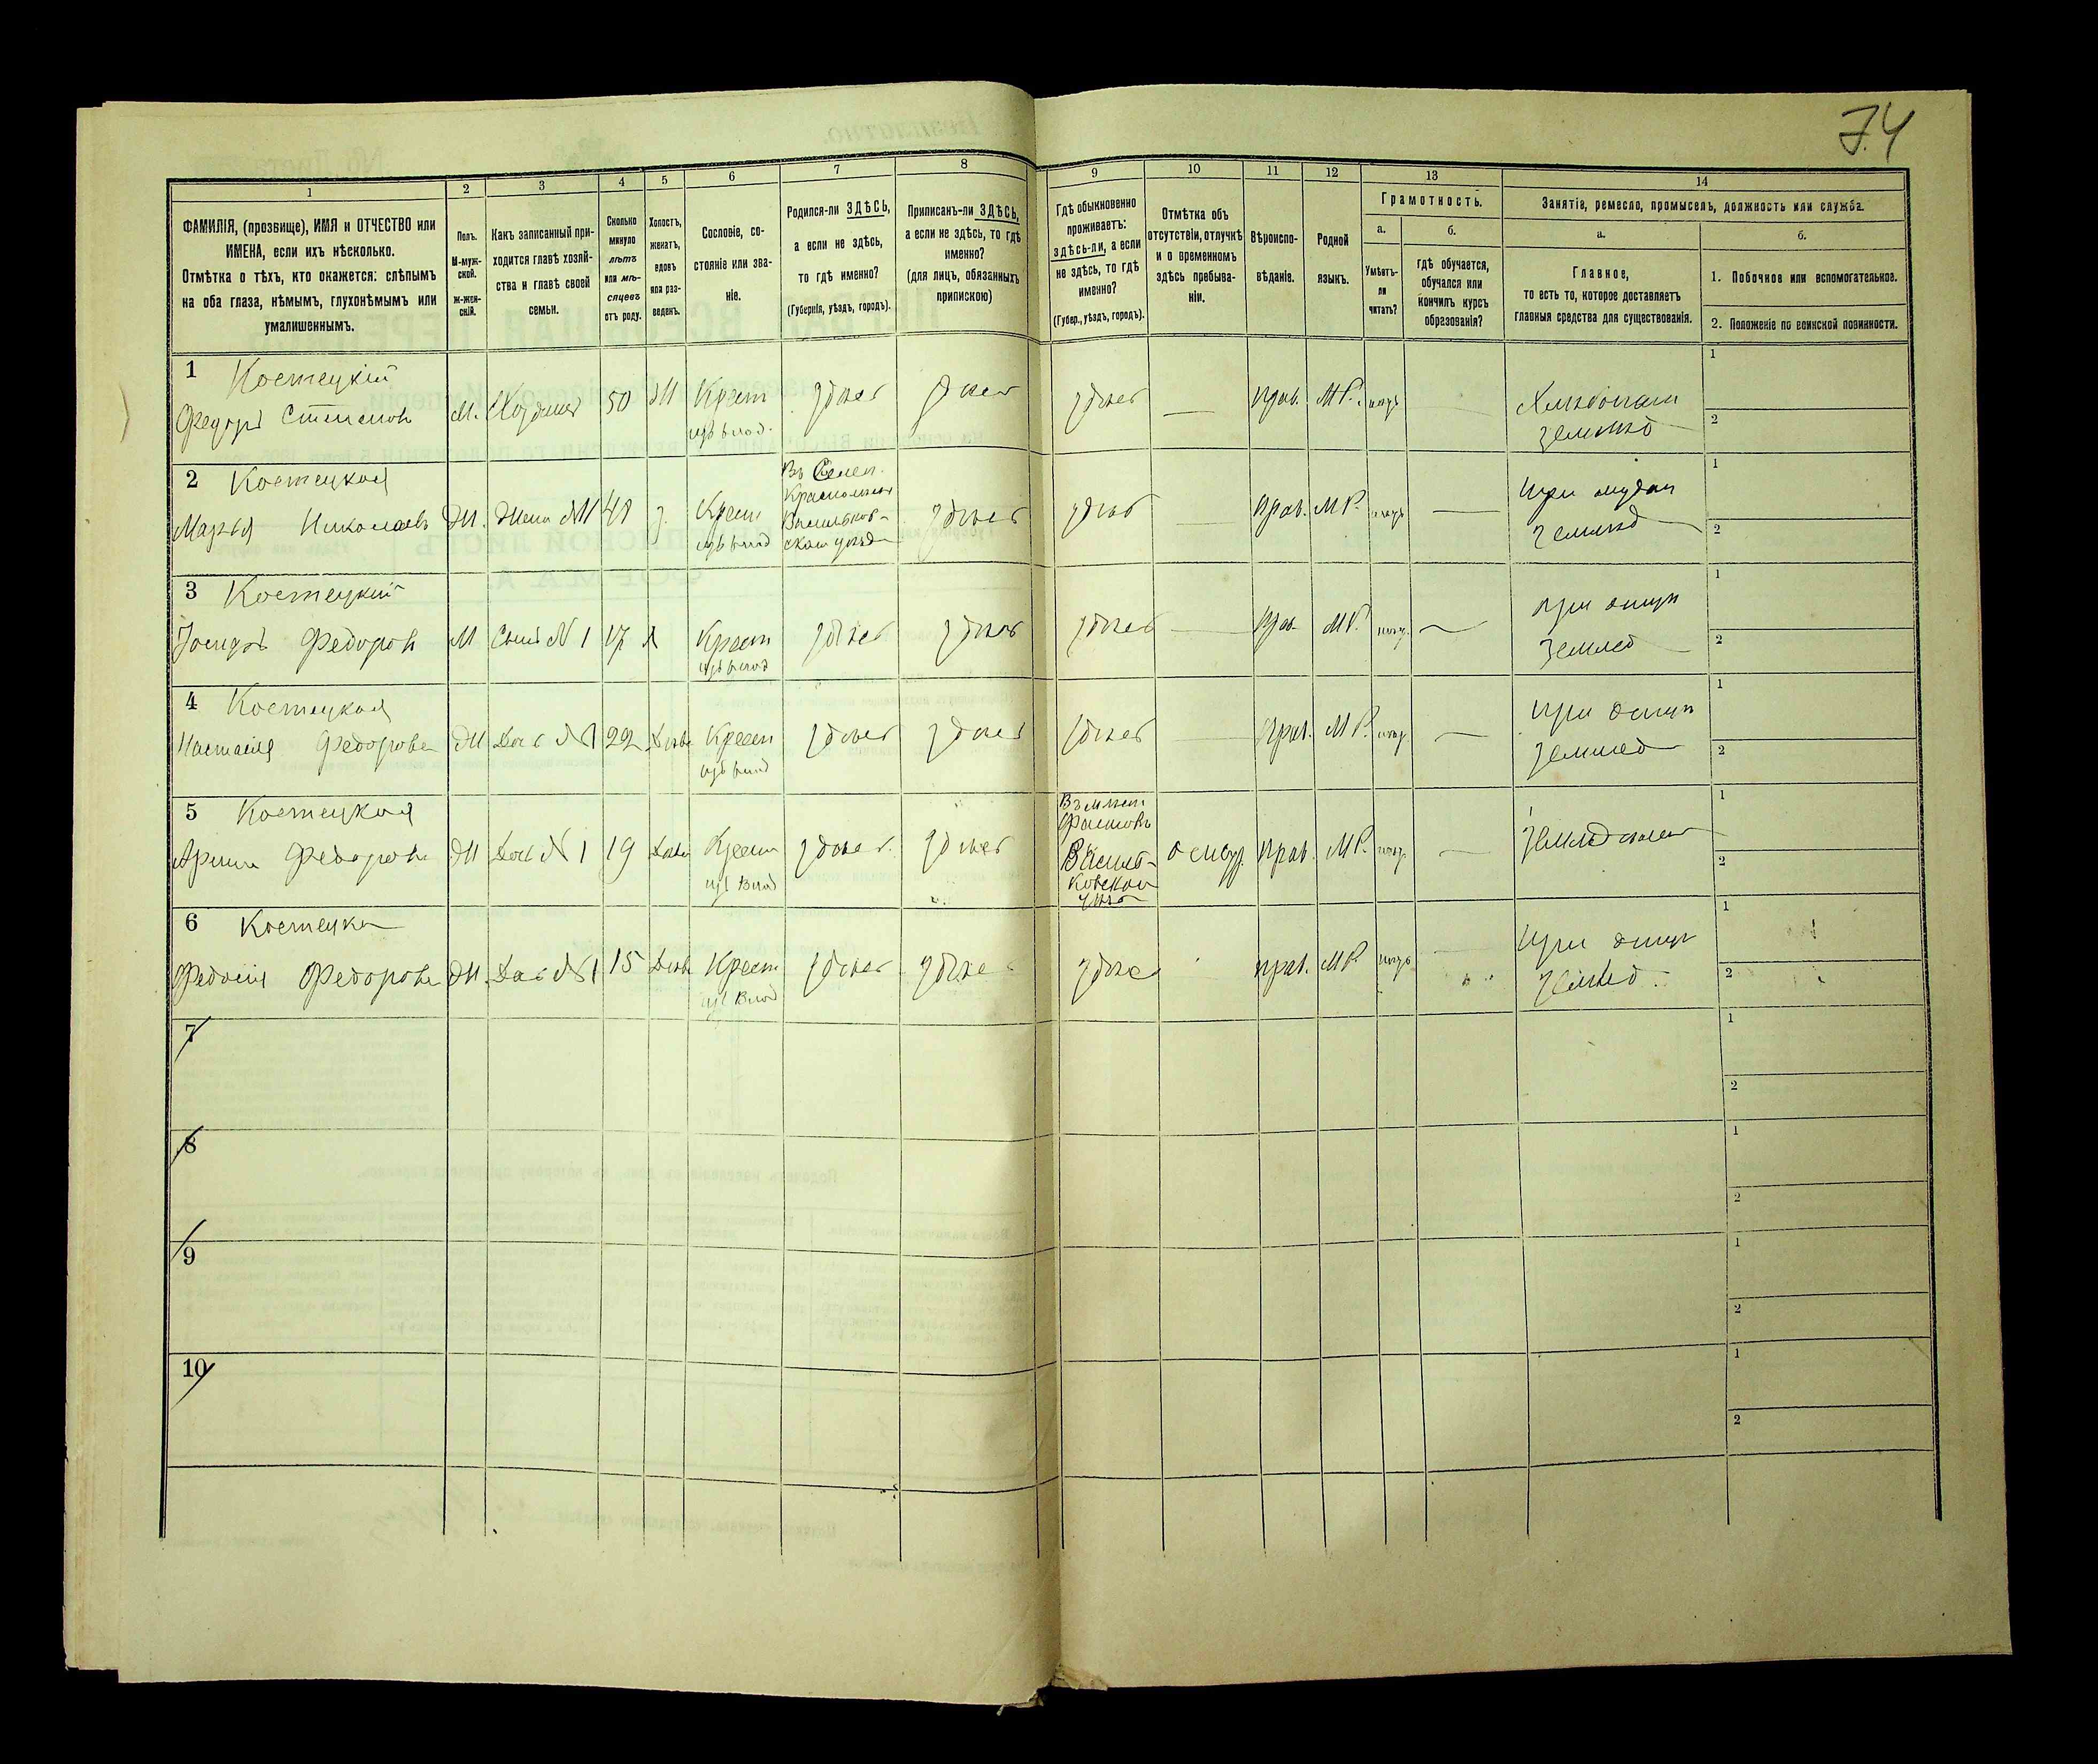 74
1
2
3
4
5
6
7
8
9
10
11
12
13
14
ФАМИЛІЯ, (прозвище), ИМЯ и ОТЧЕСТВО или
ИМЕНА, если ихъ нѣсколько.
Отмѣтка о тѣхъ, кто окажется: слѣпымъ
на оба глаза, нѣмымъ, глухонѣмымъ или
умалишеннымъ.
Полъ.
М-муж-
ской.
Ж-жен-
скій.
Какъ записанный при-
ходится главѣ хозяй-
ства и главѣ своей
семьи.
Сколько
минуло
лѣтъ
или мѣ-
сяцевъ
отъ роду.
Холостъ,
женатъ,
вдовъ
или раз-
веденъ.
Сословіе, со-
стояніе или зва-
ніе.
Родился-ли ЗДѢСЬ,
а если не здѣсь,
то гдѣ именно?
(Губернія, уѣздъ, городъ).
Приписанъ-ли ЗДѢСЬ,
а если не здѣсь, то гдѣ
именно?
(для лицъ, обязанныхъ
припискою)
Гдѣ обыкновенно
проживаетъ:
здѣсь-ли, а если
не здѣсь, то гдѣ
именно?
(Губер., уѣздъ, городъ).
Отмѣтка объ
отсутствіи, отлучкѣ
и о временномъ
здѣсь пребыва-
ніи.
Вѣроиспо-
вѣданіе.
Родной
языкъ.
Грамотность.
а.
Умѣетъ-
ли
читать?
б.
Гдѣ обучается,
обучался или
кончилъ курсъ
образованія?
Занятіе, ремесло, промыселъ, должность или служба.
а.
Главное,
то есть то, которое доставляетъ
главныя средства для существованія.
б.
1. Побочное или вспомогательное.
2. Положеніе по воинской повинности.
1 Костецкій
Федоръ Степанов М. Хозяинъ 50 Ж Крест здѣсь здѣсь здѣсь — Прав. М.Р.
изъ влад.
земледѣ
1
2
2 Костецкая
Въ
Марья Николаевъ Ж. Жена №1 Крест Васильков- здѣсь здѣсь Прав. М.Р. —
изъ влад ском уѣзд
землед
1
2
3 Костецкій
Федоров М Сынъ №1 17 Х Крест здѣсь здѣсь здѣсь — Прав М.Р. — при отцѣ
изъ влад землед
1
2
4 Костецкая
Настасія Федорова Ж Доч №1 22 Дѣвв Крест здѣсь здѣсь здѣсь — Прав. М.Р. — при отцѣ
изъ влад землед
1
2
5 Костецкая
Въ мѣст
Фастовъ
Арина Федорова Ж Доч №1 19 Крест здѣсь здѣсь Василь- Прав. М.Р. —
изъ влад ковском
1
2
6 Костецка
Федосія Федорова Ж. Доч №1 15 Крест здѣсь здѣсь здѣсь прав. М.Р. — при отцѣ
изъ влад землед
1
2
7
1
2
8
1
2
9
1
2
10
1
2